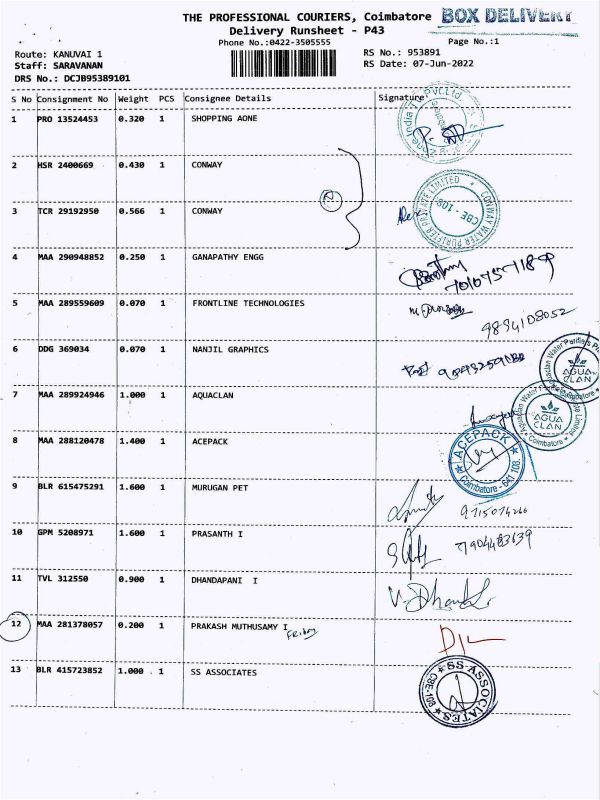 THE PROFESSIONAL COURIERS, Coimbatore BOX DELIVERY
Delivery Runsheet - P43
Phone No.:0422-3505555 Page No.:1
Route: KANUVAI 1 RS No.: 953891
Staff: SARAVANAN RS Date: 07-Jun-2022
DRS No.: DCJB95389101
S No Consignment No Weight PCS Consignee Details Signature
1 PRO 13524453 0.320 1 SHOPPING AONE
2 HSR 2400669 0.430 1 CONWAY
CONWAY WATER PURIFIER PRIVATE LIMITED
CBE - 108
3 TCR 29192950 0.566 1 CONWAY
4 MAA 290948852 0.250 1 GANAPATHY ENGG
5 MAA 289559609 0.070 1 FRONTLINE TECHNOLOGIES
9894108052
6 DDG 369034 0.070 1 NANJIL GRAPHICS
AGUA CLAN
7 MAA 289924946 1.000 1 AQUACLAN
AGUA CLAN
Coimbatore
8 MAA 288120478 1.400 1 ACEPACK
ACEPACK
Coimbatore - 641 108.
9 BLR 615475291 1.600 1 MURUGAN PET
9715074266
10 GPM 5208971 1.600 1 PRASANTH I
7904483639
11 TVL 312550 0.900 1 DHANDAPANI I
12 MAA 281378057 0.200 1 PRAKASH MUTHUSAMY I
Friday
13 BLR 415723852 1.000 1 SS ASSOCIATES
SS ASSOCIATES